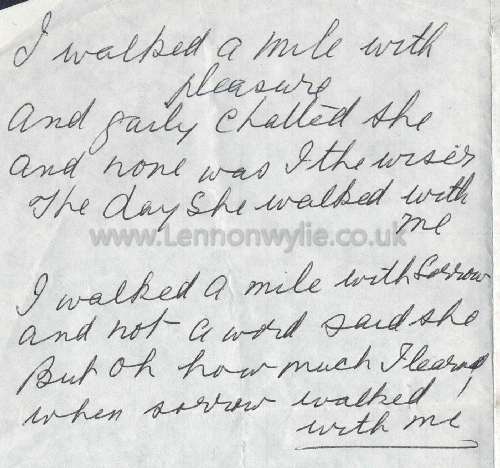 I walked a mile with
pleasure
And gaily chatted she
And none was I the wiser
The day She walked with
me
www.Lennonwylie.co.uk
I walked a mile with Sorrow
and not a word said she
But Oh how much I learned
when sorrow walked
with me